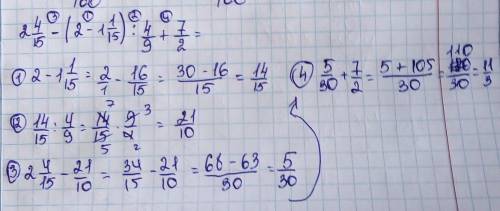 2 4/15 - (2 - 1 1/15) : 4/9 + 7/2 =
① 2 - 1 1/15 = 2/1 - 16/15 = (30 - 16)/15 = 14/15
② 14/15 : 4/9 = 14/15 · 9/4 = 21/10
③ 2 4/15 - 21/10 = 34/15 - 21/10 = (68 - 63)/30 = 5/30
④ 5/30 + 7/2 = (5 + 105)/30 = 110/30 = 11/3